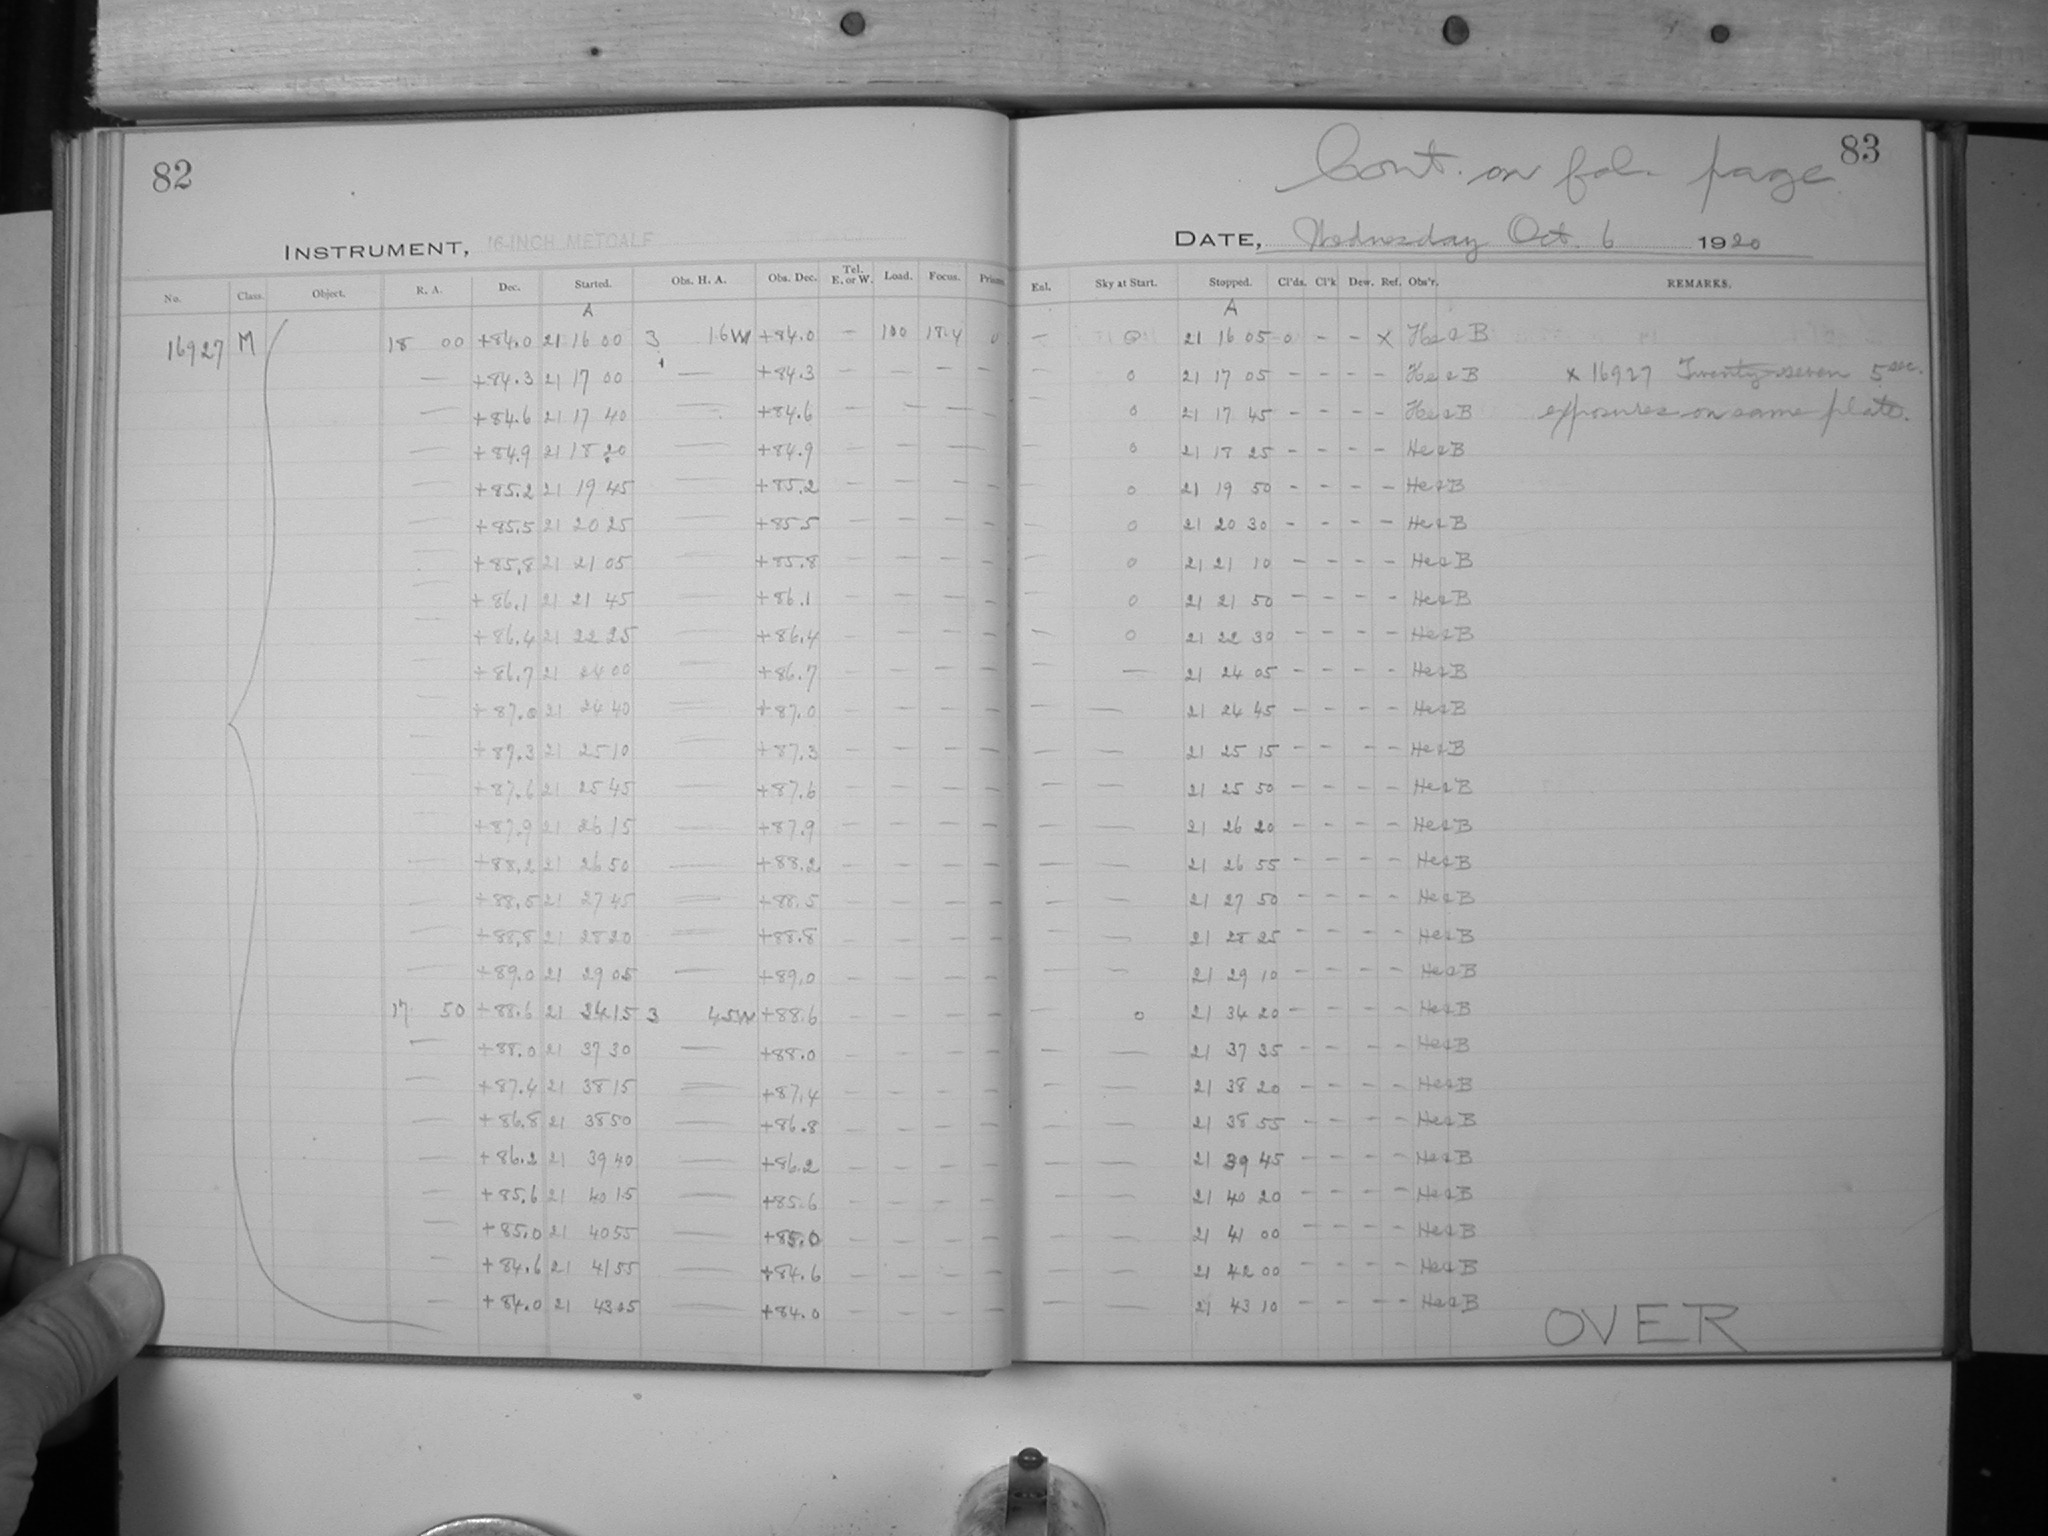 82
INSTRUMENT, 16-INCH METCALF
No. Class. Object. R. A. Dec. Started. Obs. H. A. Obs. Dec. Tel. E. or W. Load. Focus. Prism
A
16927 M 18 00 +84.0 21 16 00 3 16W +84.0 — 100 18.4 0
— +84.3 21 17 00 — +84.3 — — — —
— +84.6 21 17 40 — +84.6 — — — —
— +84.9 21 18 20 — +84.9 — — — —
— +85.2 21 19 45 — +85.2 — — — —
— +85.5 21 20 25 — +85.5 — — — —
— +85.8 21 21 05 — +85.8 — — — —
— +86.1 21 21 45 — +86.1 — — — —
— +86.4 21 22 25 — +86.4 — — — —
— +86.7 21 24 00 — +86.7 — — — —
— +87.0 21 24 40 — +87.0 — — — —
— +87.3 21 25 10 — +87.3 — — — —
— +87.6 21 25 45 — +87.6 — — — —
— +87.9 21 26 15 — +87.9 — — — —
— +88.2 21 26 50 — +88.2 — — — —
— +88.5 21 27 45 — +88.5 — — — —
— +88.8 21 28 20 — +88.8 — — — —
— +89.0 21 29 05 — +89.0 — — — —
17 50 +88.6 21 34 15 3 45W +88.6 — — — —
— +88.0 21 37 30 — +88.0 — — — —
— +87.4 21 38 15 — +87.4 — — — —
— +86.8 21 38 50 — +86.8 — — — —
— +86.2 21 39 40 — +86.2 — — — —
— +85.6 21 40 15 — +85.6 — — — —
— +85.0 21 40 55 — +85.0 — — — —
— +84.6 21 41 55 — +84.6 — — — —
— +84.0 21 43 05 — +84.0 — — — —
83
Cont. on fol. page
DATE, Wednesday Oct. 6 1920
Enl. Sky at Start. Stopped. Cl'ds. Cl'k Dew. Ref. Obs'r. REMARKS.
A
— 0 21 16 05 0 — — x He&B
0 21 17 05 — — — — He&B x 16927 Twenty-seven 5 sec.
0 21 17 45 — — — — He&B exposures on same plate.
0 21 18 25 — — — — He&B
0 21 19 50 — — — — He&B
0 21 20 30 — — — — He&B
0 21 21 10 — — — — He&B
0 21 21 50 — — — — He&B
— 0 21 22 30 — — — — He&B
— — 21 24 05 — — — — He&B
— — 21 24 45 — — — — He&B
— — 21 25 15 — — — — He&B
— — 21 25 50 — — — — He&B
— — 21 26 20 — — — — He&B
— — 21 26 55 — — — — He&B
— — 21 27 50 — — — — He&B
— — 21 28 25 — — — — He&B
— — 21 29 10 — — — — He&B
— 0 21 34 20 — — — — He&B
— — 21 37 35 — — — — He&B
— — 21 38 20 — — — — He&B
— — 21 38 55 — — — — He&B
— — 21 39 45 — — — — He&B
— — 21 40 20 — — — — He&B
— — 21 41 00 — — — — He&B
— — 21 42 00 — — — — He&B
— — 21 43 10 — — — — He&B
OVER